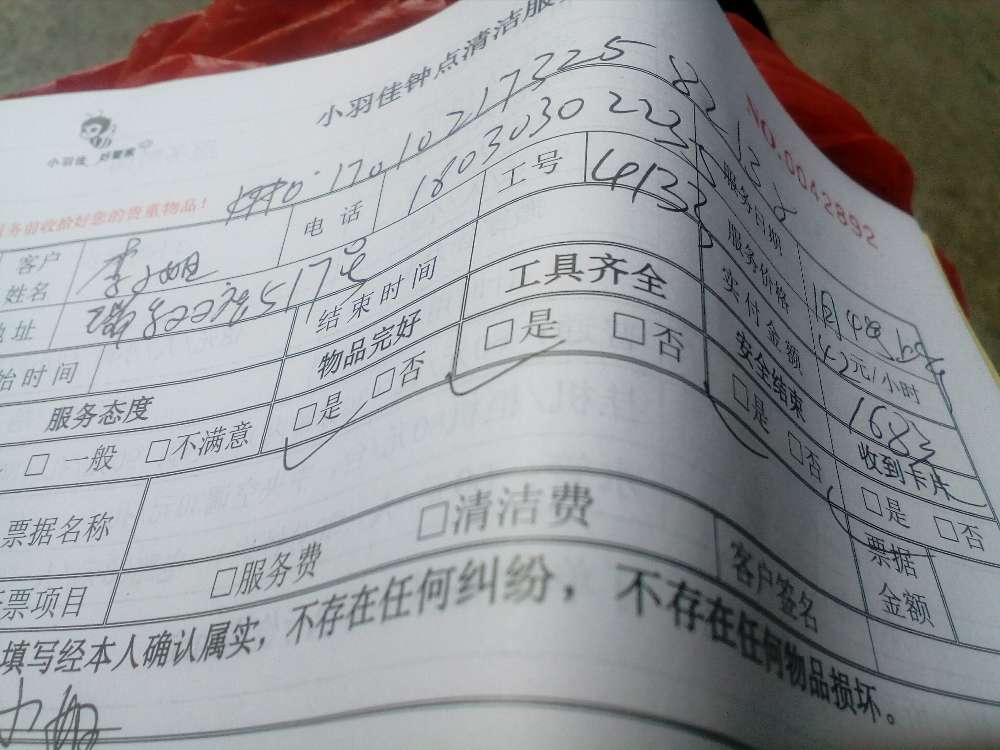 小羽佳钟点清洁服务
小羽佳 好管家
NO.0042892
务前收拾好您的贵重物品！
17010217325
客户姓名 李小姐 电话 18030302225 工号 4133 服务日期
地址 517号 服务价格 42元/小时
始时间 结束时间 实付金额 168
服务态度 物品完好 工具齐全 安全结束 收到卡片
□一般 □不满意 □是 □否 □是 □否 □是 □否 □是 □否
票据名称 票据金额
票项目 □服务费 □清洁费 客户签名
填写经本人确认属实，不存在任何纠纷，不存在任何物品损坏。